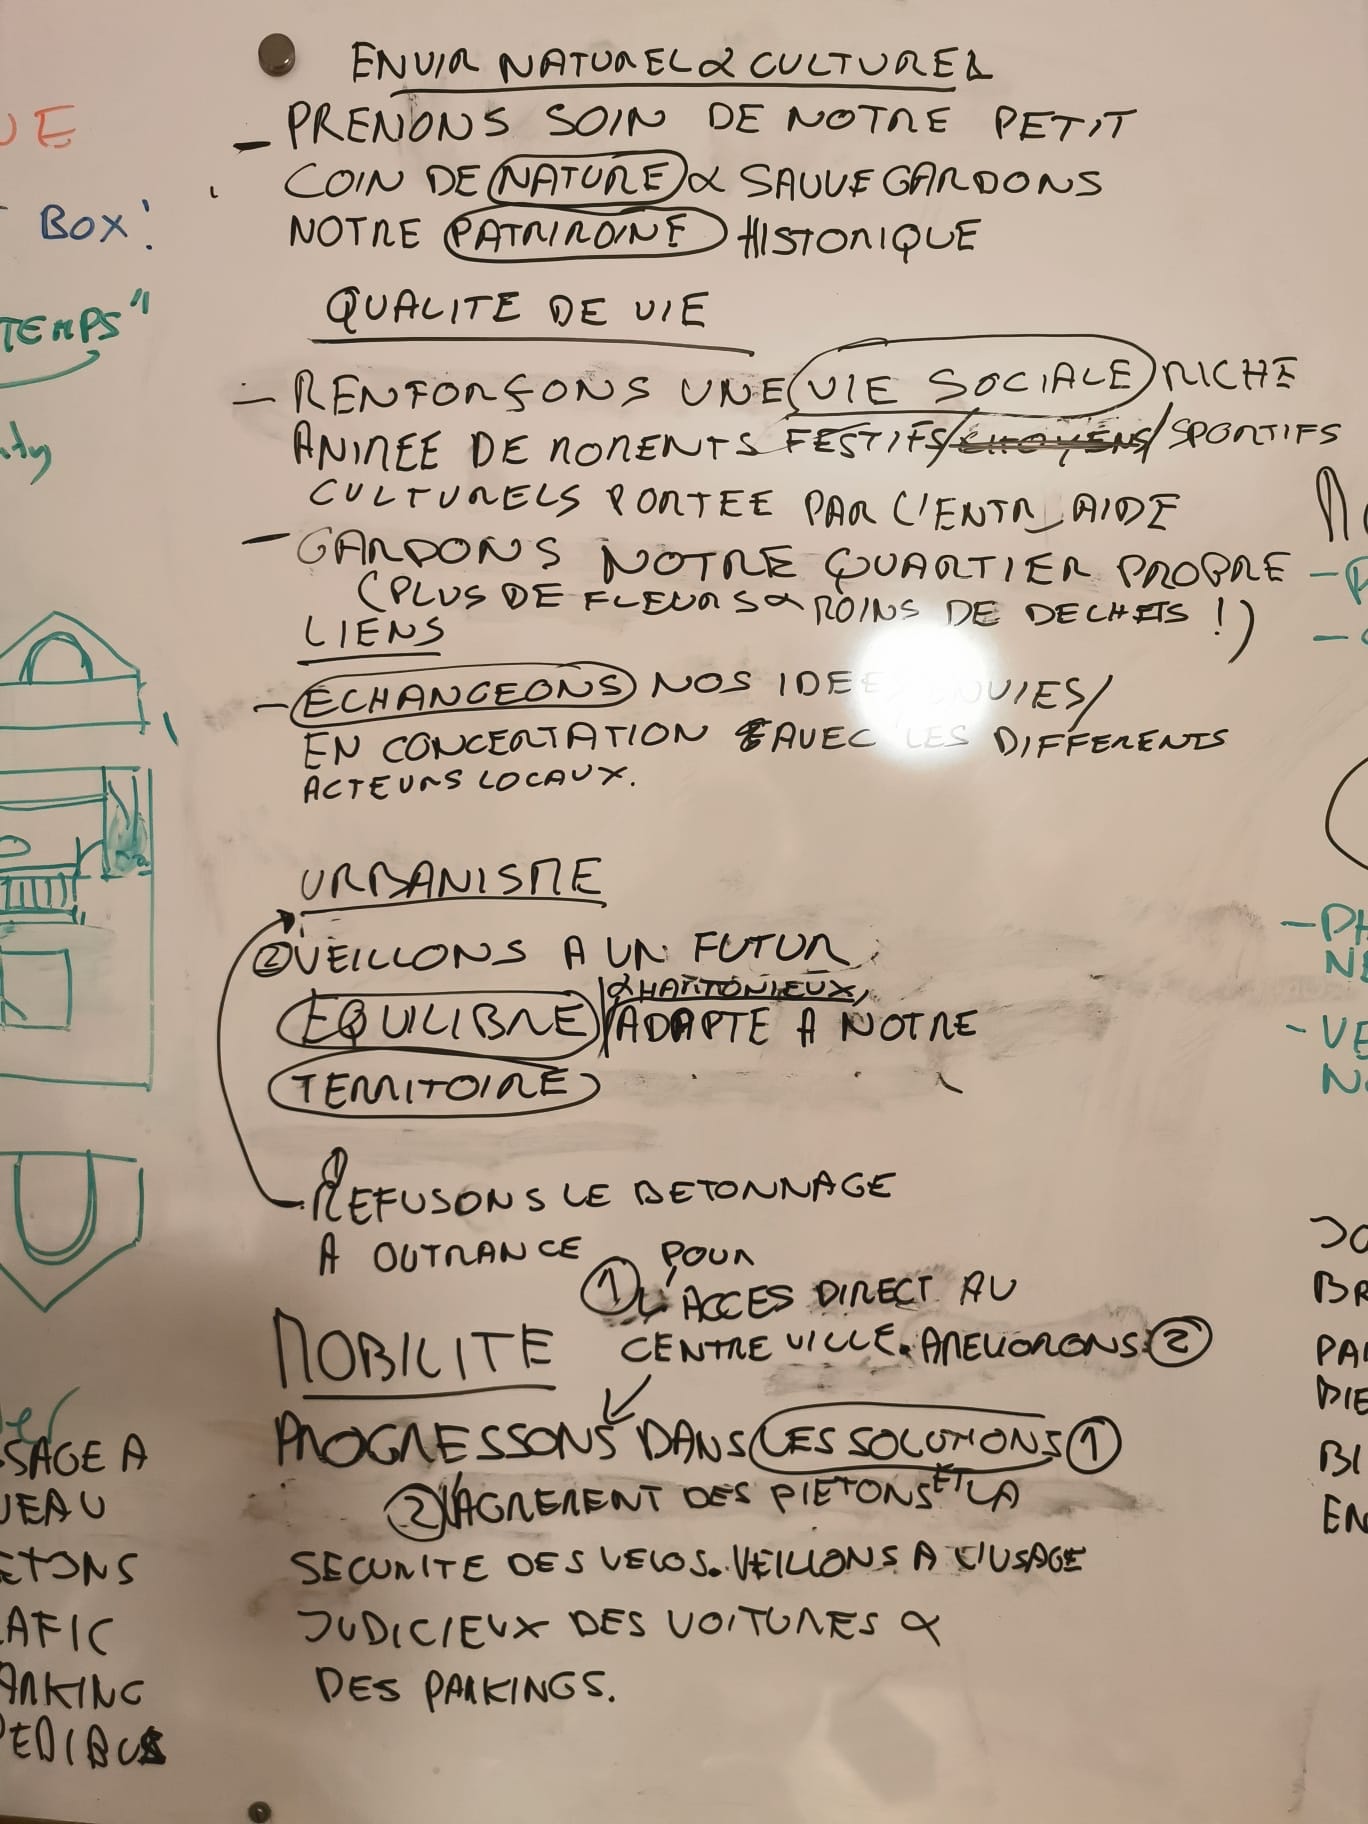 ENVIR NATUREL & CULTUREL
- PRENONS SOIN DE NOTRE PETIT
COIN DE NATURE & SAUVEGARDONS
NOTRE PATRIMOINE HISTORIQUE
QUALITE DE VIE
- RENFORÇONS UNE VIE SOCIALE RICHE
ANIMEE DE MOMENTS FESTIFS/CITOYENS/SPORTIFS
CULTURELS PORTEE PAR L'ENTR_AIDE
- GARDONS NOTRE QUARTIER PROPRE
(PLUS DE FLEURS & MOINS DE DECHETS !)
LIENS
- ECHANGEONS NOS IDEES ENVIES/
EN CONCERTATION AVEC LES DIFFERENTS
ACTEURS LOCAUX.
URBANISME
② VEILLONS A UN FUTUR
& HARMONIEUX,
EQUILIBRE/ADAPTE A NOTRE
TERRITOIRE
①
- REFUSONS LE BETONNAGE
A OUTRANCE
POUR
① L'ACCES DIRECT AU
CENTRE VILLE. AMELIORONS ②
MOBILITE
PROGRESSONS DANS LES SOLUTIONS ①
② L'AGREMENT DES PIETONS ET LA
SECURITE DES VELOS. VEILLONS A L'USAGE
JUDICIEUX DES VOITURES &
DES PARKINGS.
UE
BOX!
TEMPS"
ity
SAGE A
VEAU
ETONS
AFIC
ARKING
PEDIBUS
- PH
NE
- VE
N
JO
BR
PAR
PIE
BI
EN